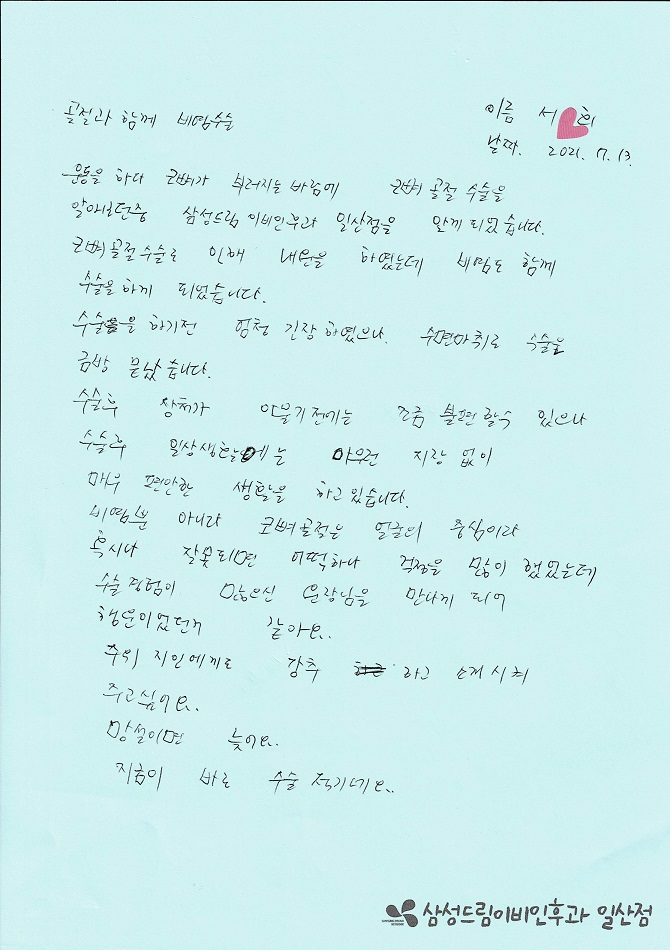 골절과 함께 비염수술
이름 서 희
날짜. 2021. 7. 13.
운동을 하다 코뼈가 부러지는 바람에 코뼈 골절 수술을
알아보던중 삼성드림이비인후과 일산점을 알게 되었습니다.
코뼈골절수술로 인해 내원을 하였는데 비염도 함께
수술을 하게 되었습니다.
수술을 하기전 엄청 긴장 하였으나. 수면마취로 수술을
금방 끝났습니다.
수술후 상처가 아물기전에는 조금 불편할수 있으나
수술후 일상생활에는 아무런 지장 없이
매우 편안한 생활을 하고있습니다.
비염뿐 아니라 코뼈골절은 얼굴의 중심이라
혹시나 잘못되면 어떡하나 걱정을 많이 했었는데
수술경험이 많으신 원장님을 만나게 되어
행운이었던거 같아요..
주위 지인에게도 강추 라고 소개시켜
주고싶어요..
망설이면 늦어요..
지금이 바로 수술 적기네요..
삼성드림이비인후과 일산점